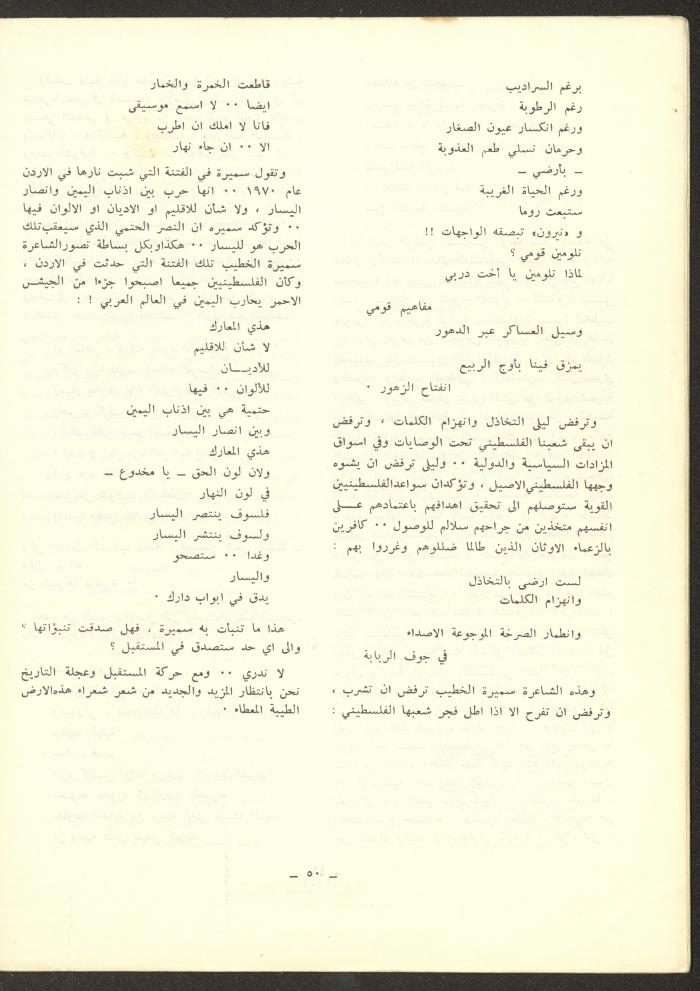 برغم السراديب
رغم الرطوبة
ورغم انكسار عيون الصغار
وحرمان نسلي طعم العذوبة
ــ بأرضي ــ
ورغم الحياة الغريبة
ستبعث روما
و «نيرون» تبصقه الواجهات !!
تلومين قومي ؟
لماذا تلومين يا أخت دربي
مفاهيم قومي
وسيل العساكر عبر الدهور
يمزق فينا بأوج الربيع
انفتاح الزهور ٠
وترفض ليلى التخاذل وانهزام الكلمات ، وترفض
ان يبقى شعبنا الفلسطيني تحت الوصايات وفي اسواق
المزادات السياسية والدولية ٠٠ وليلى ترفض ان يشوه
وجهها الفلسطيني الاصيل ، وتؤكد ان سواعد الفلسطينيين
القوية ستوصلهم الى تحقيق اهدافهم باعتمادهم عــلى
انفسهم متخذين من جراحهم سلالم للوصول ٠٠ كافرين
بالزعماء الاوثان الذين طالما ضللوهم وغرروا بهم :
لست ارضى بالتخاذل
وانهزام الكلمات
وانطمار الصرخة الموجوعة الاصداء
في جوف الربابة
وهذه الشاعرة سميرة الخطيب ترفض ان تشرب ،
وترفض ان تفرح الا اذا اطل فجر شعبها الفلسطيني :
قاطعت الخمرة والخمار
ايضا ٠٠ لا اسمع موسيقى
فانا لا املك ان اطرب
الا ٠٠ ان جاء نهار
وتقول سميرة في الفتنة التي شبت نارها في الاردن
عام ١٩٧٠ ٠٠ انها حرب بين اذناب اليمين وانصار
اليسار ، ولا شأن للاقليم او الاديان او الالوان فيها
٠٠ وتؤكد سميره ان النصر الحتمي الذي سيعقب تلك
الحرب هو لليسار ٠٠ هكذا وبكل بساطة تصور الشاعرة
سميرة الخطيب تلك الفتنة التي حدثت في الاردن ،
وكأن الفلسطينيين جميعا اصبحوا جزءا من الجيش
الاحمر يحارب اليمين في العالم العربي ! :
هذي المعارك
لا شأن للاقليم
للأديــان
للألوان ٠٠ فيها
حتمية هي بين اذناب اليمين
وبين انصار اليسار
هذي المعارك
ولان لون الحق ــ يا مخدوع ــ
في لون النهار
فلسوف ينتصر اليسار
ولسوف ينتشر اليسار
وغدا ٠٠ ستصحو
واليسار
يدق في ابواب دارك ٠
هذا ما تنبأت به سميرة ، فهل صدقت تنبؤاتها ؟
والى اي حد ستصدق في المستقبل ؟
لا ندري ٠٠ ومع حركة المستقبل وعجلة التاريخ
نحن بانتظار المزيد والجديد من شعر شعراء هذه الارض
الطيبة المعطاء ٠
ــ ٥٠ ــ